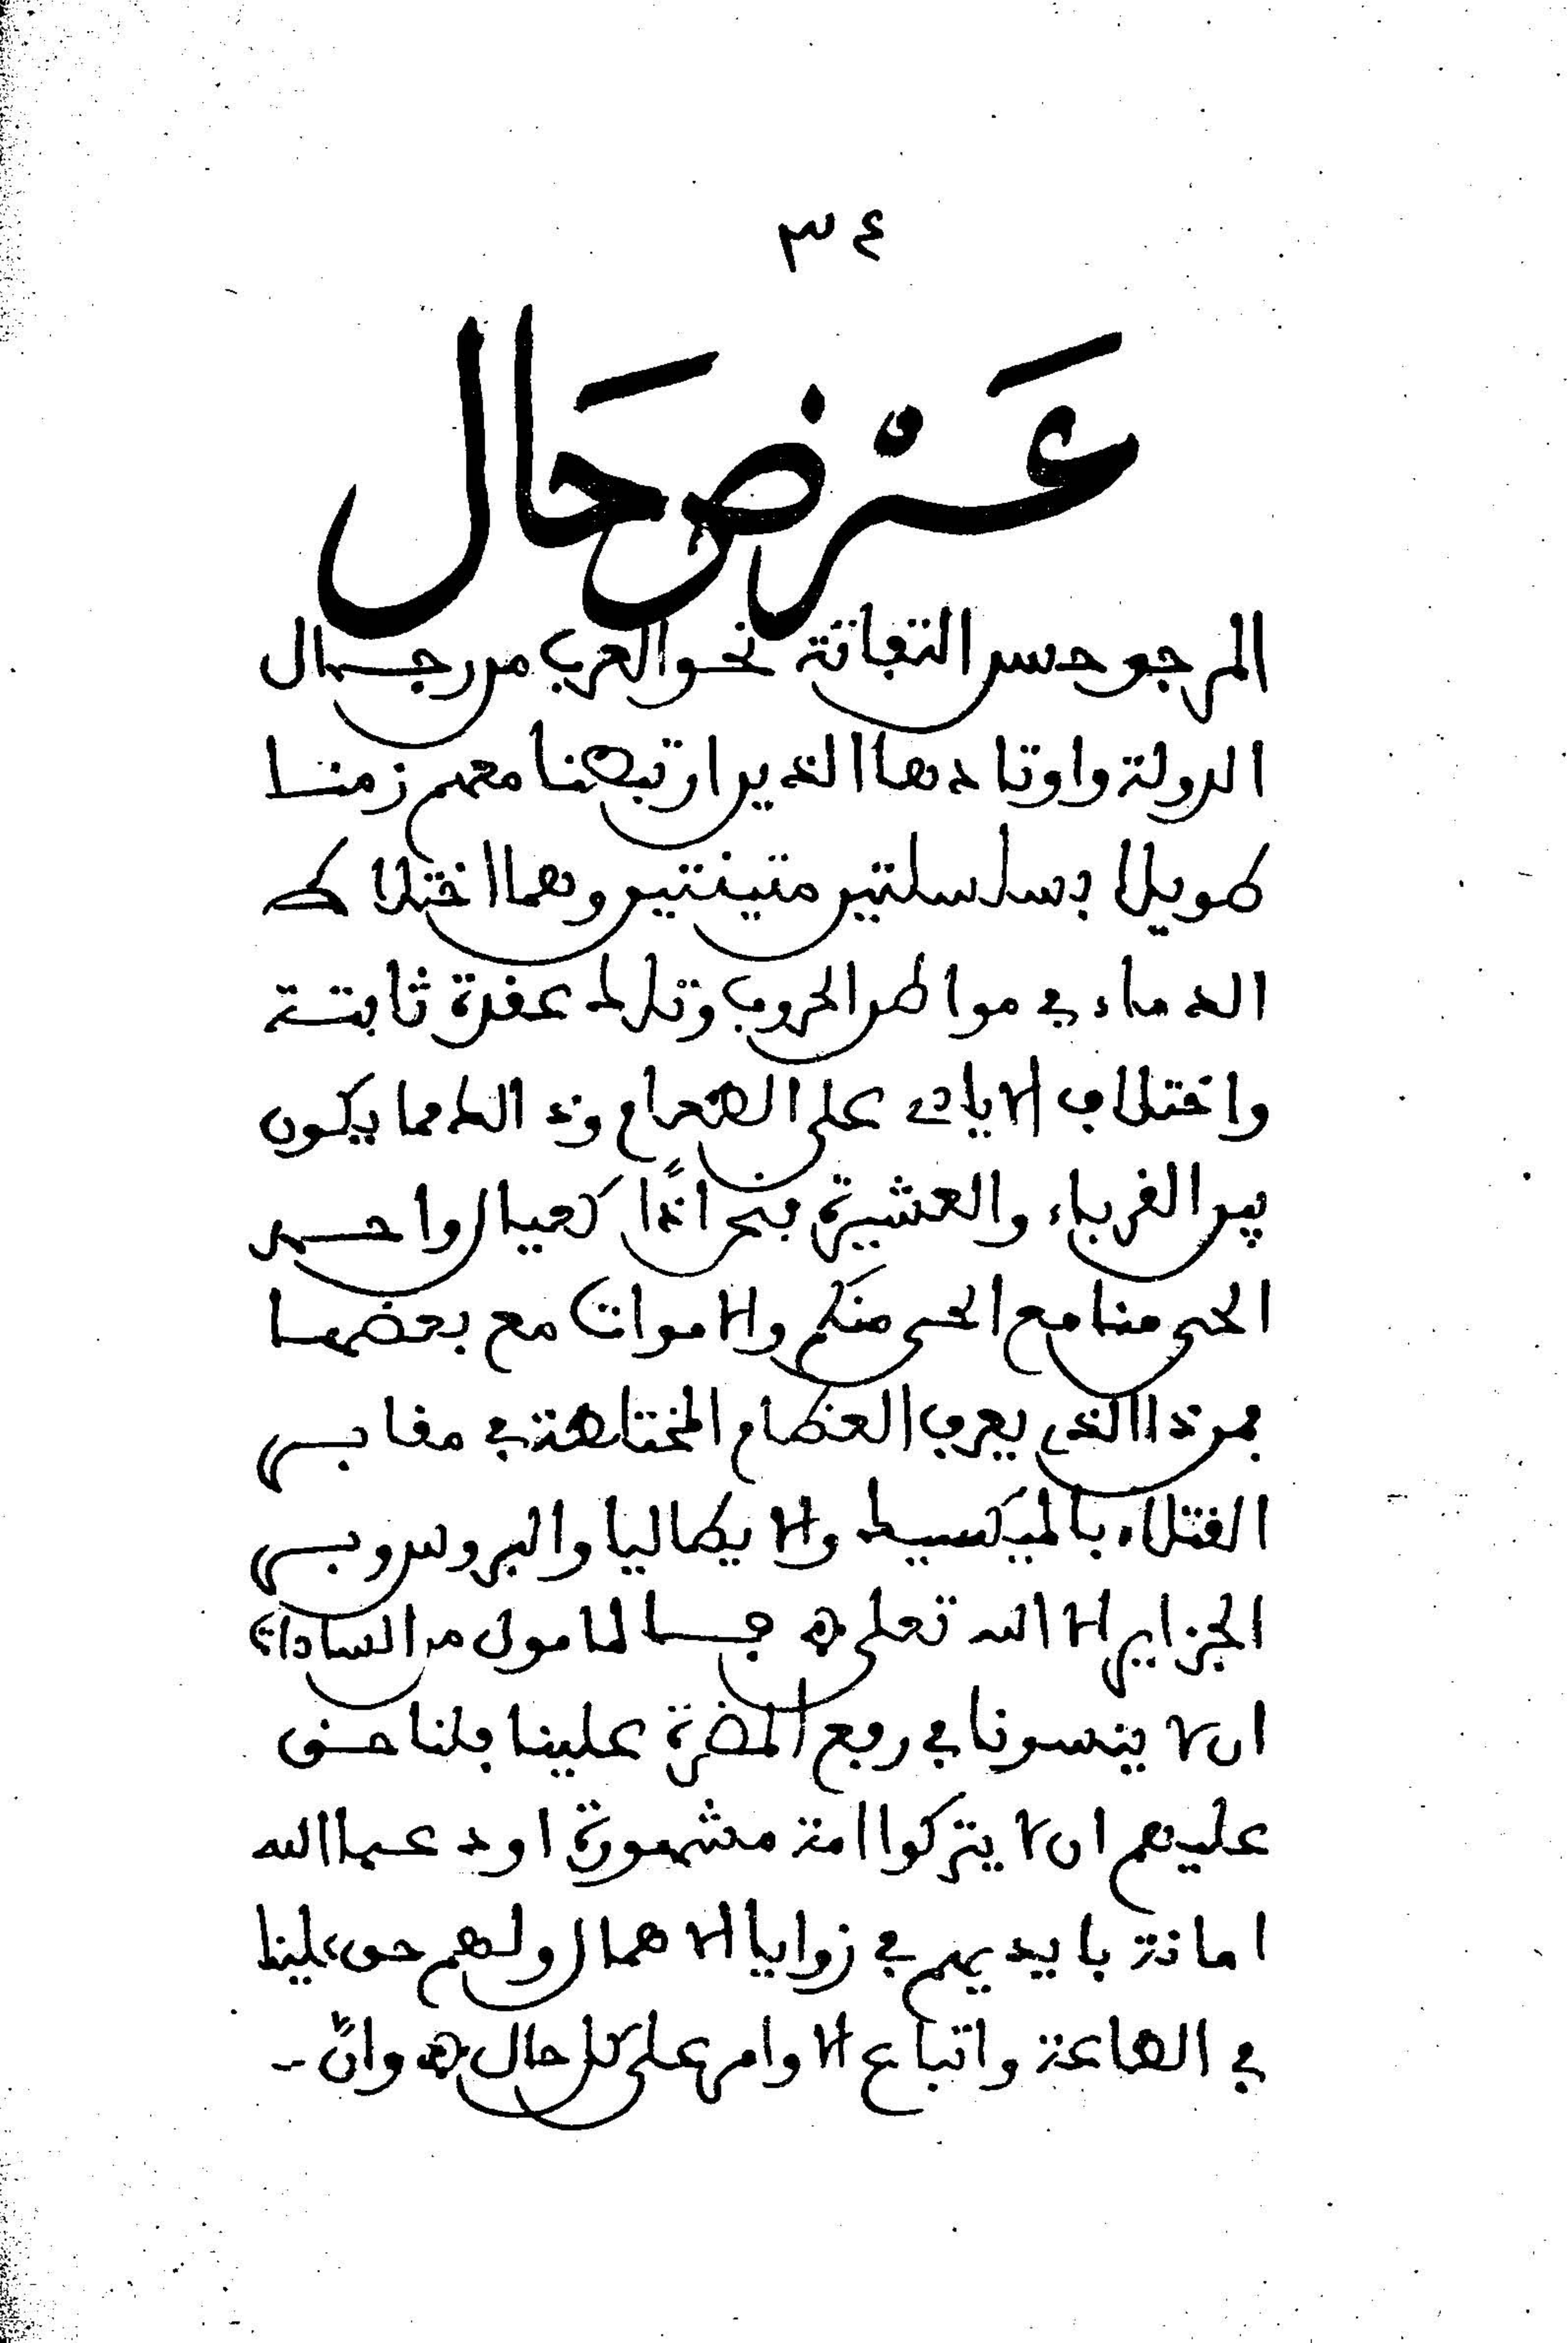 ٣٤
عَرْض حَال
المرجو حسن التفاتة نحو العرب من رجال
الدولة واوتادها الذين ارتبطنا معهم زمنا
طويلا بسلسلتين متينتين وهما اختلاط
الدماء في مواطن الحروب وتلك عقدة ثابتة
واختلاف الايات على الطعام وذلك مما يكون
بين الغرباء والعشيرة فنحن اذًا كعيال واحد
الحي منا مع الحي منكم والاموات مع بعضها
فمن ذا الذي يعرف العظام المختلطة في مقابر
القتلاء بالميكسيك والايطاليا والبروس وبر
الجزاير الا الله تعلى ۞ فالمامول من السادات
ان لا ينسونا في رفع المضرة علينا فلنا حق
عليهم ان لا يتركوا امة مشهورة اودعها الله
امانة بايديهم في زوايا الاهمال ولهم حق علينا
في الطاعة واتباع الاوامر على كل حال ۞ وانّ -